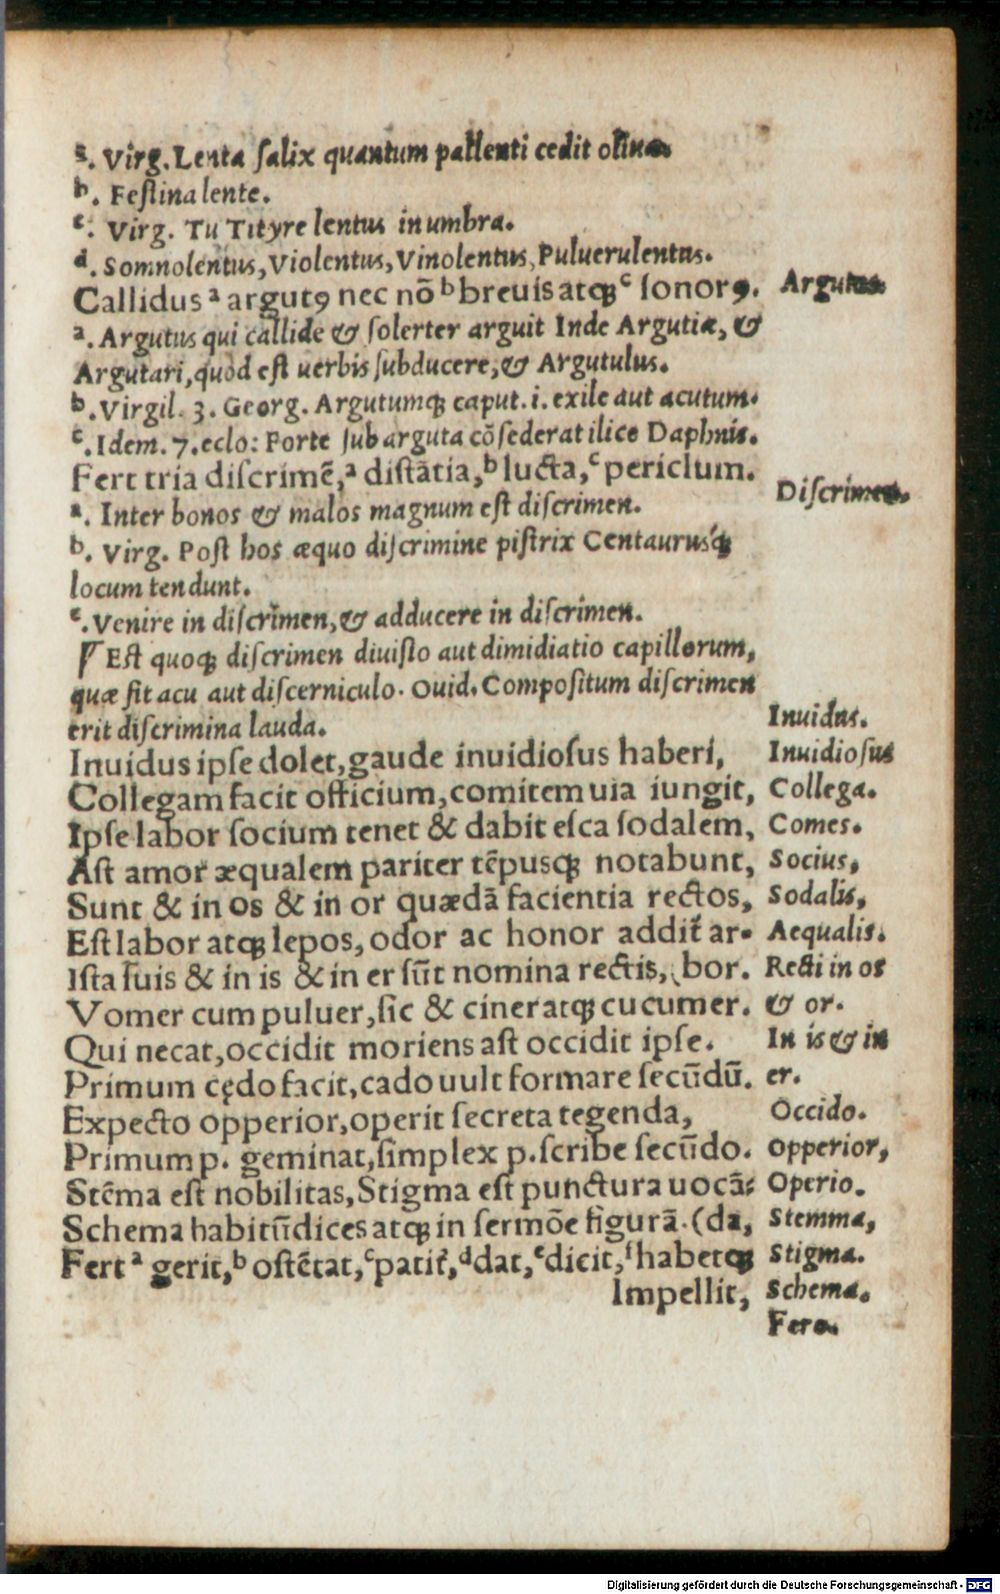 a. Virg. Lenta ſalix quantum pallenti cedit oliuæ.
b. Feſtina lente.
c. Virg. Tu Tityre lentus in umbra.
d. Somnolentus, Violentus, Vinolentus, Puluerulentus.
Callidus a argutꝰ nec nõ b breuis atqꝫ c ſonorꝰ. Argutus.
a. Argutus qui callide & ſolerter arguit Inde Argutiæ, &
Argutari, quod eſt uerbis ſubducere, & Argutulus.
b. Virgil. 3. Georg. Argutumqꝫ caput. i. exile aut acutum.
c. Idem. 7. eclo: Forte ſub arguta cõſederat ilice Daphnis.
Fert tria diſcrimẽ, a diſtãtia, b lucta, c periclum. Diſcrimen.
a. Inter bonos & malos magnum eſt diſcrimen.
b. Virg. Poſt hos æquo diſcrimine piſtrix Centaurusqꝫ
locum tendunt.
c. Venire in diſcrimen, & adducere in diſcrimen.
¶ Eſt quoqꝫ diſcrimen diuiſio aut dimidiatio capillorum,
quæ fit acu aut diſcerniculo. Ouid. Compoſitum diſcrimen
erit diſcrimina lauda. Inuidus.
Inuidus ipſe dolet, gaude inuidioſus haberi, Inuidioſus
Collegam facit officium, comitem uia iungit, Collega.
Ipſe labor ſocium tenet & dabit eſca ſodalem, Comes.
Aſt amor æqualem pariter tẽpusqꝫ notabunt, Socius,
Sunt & in os & in or quædã facientia rectos, Sodalis,
Eſt labor atqꝫ lepos, odor ac honor addit̃ ar- Aequalis.
Iſta ſuis & in is & in er ſũt nomina rectis, (bor. Recti in os
Vomer cum puluer, ſic & ciner atqꝫ cucumer. & or.
Qui necat, occidit moriens aſt occidit ipſe. In is & in
Primum cędo facit, cado uult formare ſecũdũ. er.
Expecto opperior, operit ſecreta tegenda, Occido.
Primum p. geminat, ſimplex p. ſcribe ſecũdo. Opperior,
Stẽma eſt nobilitas, Stigma eſt punctura uocã- Operio.
Schema habitũ dices atqꝫ in ſermõe figurã. (da, Stemma,
Fert a gerit, b oſtẽtat, c patit̃, d dat, e dicit, f habetqꝫ Stigma.
Impellit, Schema.
Fero.
Digitalisierung gefördert durch die Deutsche Forschungsgemeinschaft - DFG